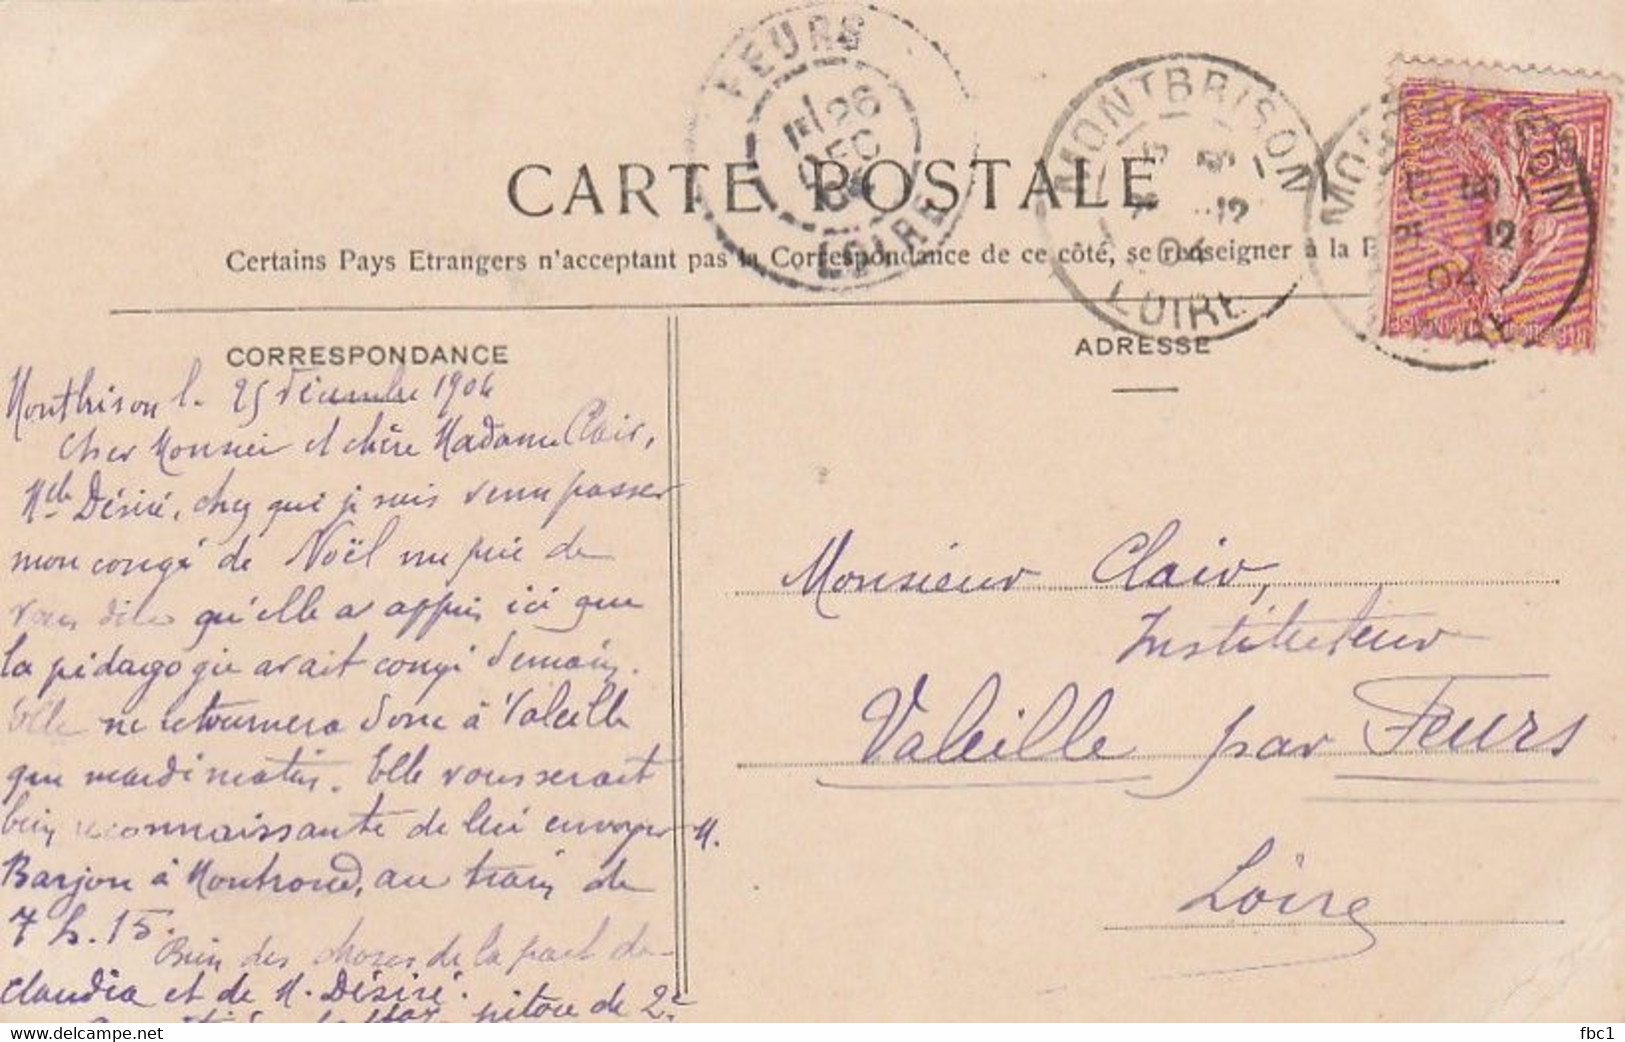 FEURS
26
DEC
04
LOIRE
MONTBRISON
12
04
LOIRE
12
04
CARTE POSTALE
Certains Pays Etrangers n'acceptant pas la Correspondance de ce côté, se renseigner à la P
CORRESPONDANCE
Montbrison l. 25 décembre 1904
Cher Monsieur et chère Madame Clair,
Melle Désiré, chez qui je suis venu passer
mon congé de Noël me prie de
vous dire qu'elle a appris ici que
la pédagogie avait congé demain.
Elle ne retournera donc à Valeille
que mardi matin. Elle vous serait
bien reconnaissante de lui envoyer M.
Barjon à Montrond, au train de
7 h. 15.
Bien des choses de la part de
Claudia et de M. Désiré.
de 2e
ADRESSE
Monsieur Clair,
Instituteur
Valeille par Feurs
Loire
fbc1